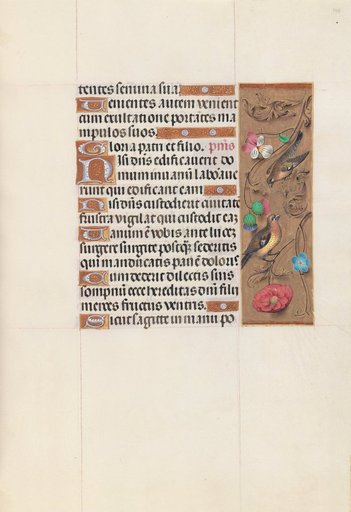 tentes semina sua.
Venientes autem venient
cum exultatione portātes ma
nipulos suos.
Gloria patri et filio. pſmꝰ
Nisi dn̄s edificauerit do
mum in uanū laboraue
runt qui edificant eam
Nisi dn̄s custodierit ciuitatē
frustra vigilat qui custodit eā
Uanum ē vobis ante lucē
surgere surgite postq̄ sederitis
qui manducatis panē doloris
Cum dederit dilectis suis
sompnū ecce hereditas dn̄i filii
merces fructus ventris.
Sicut sagitte in manu po